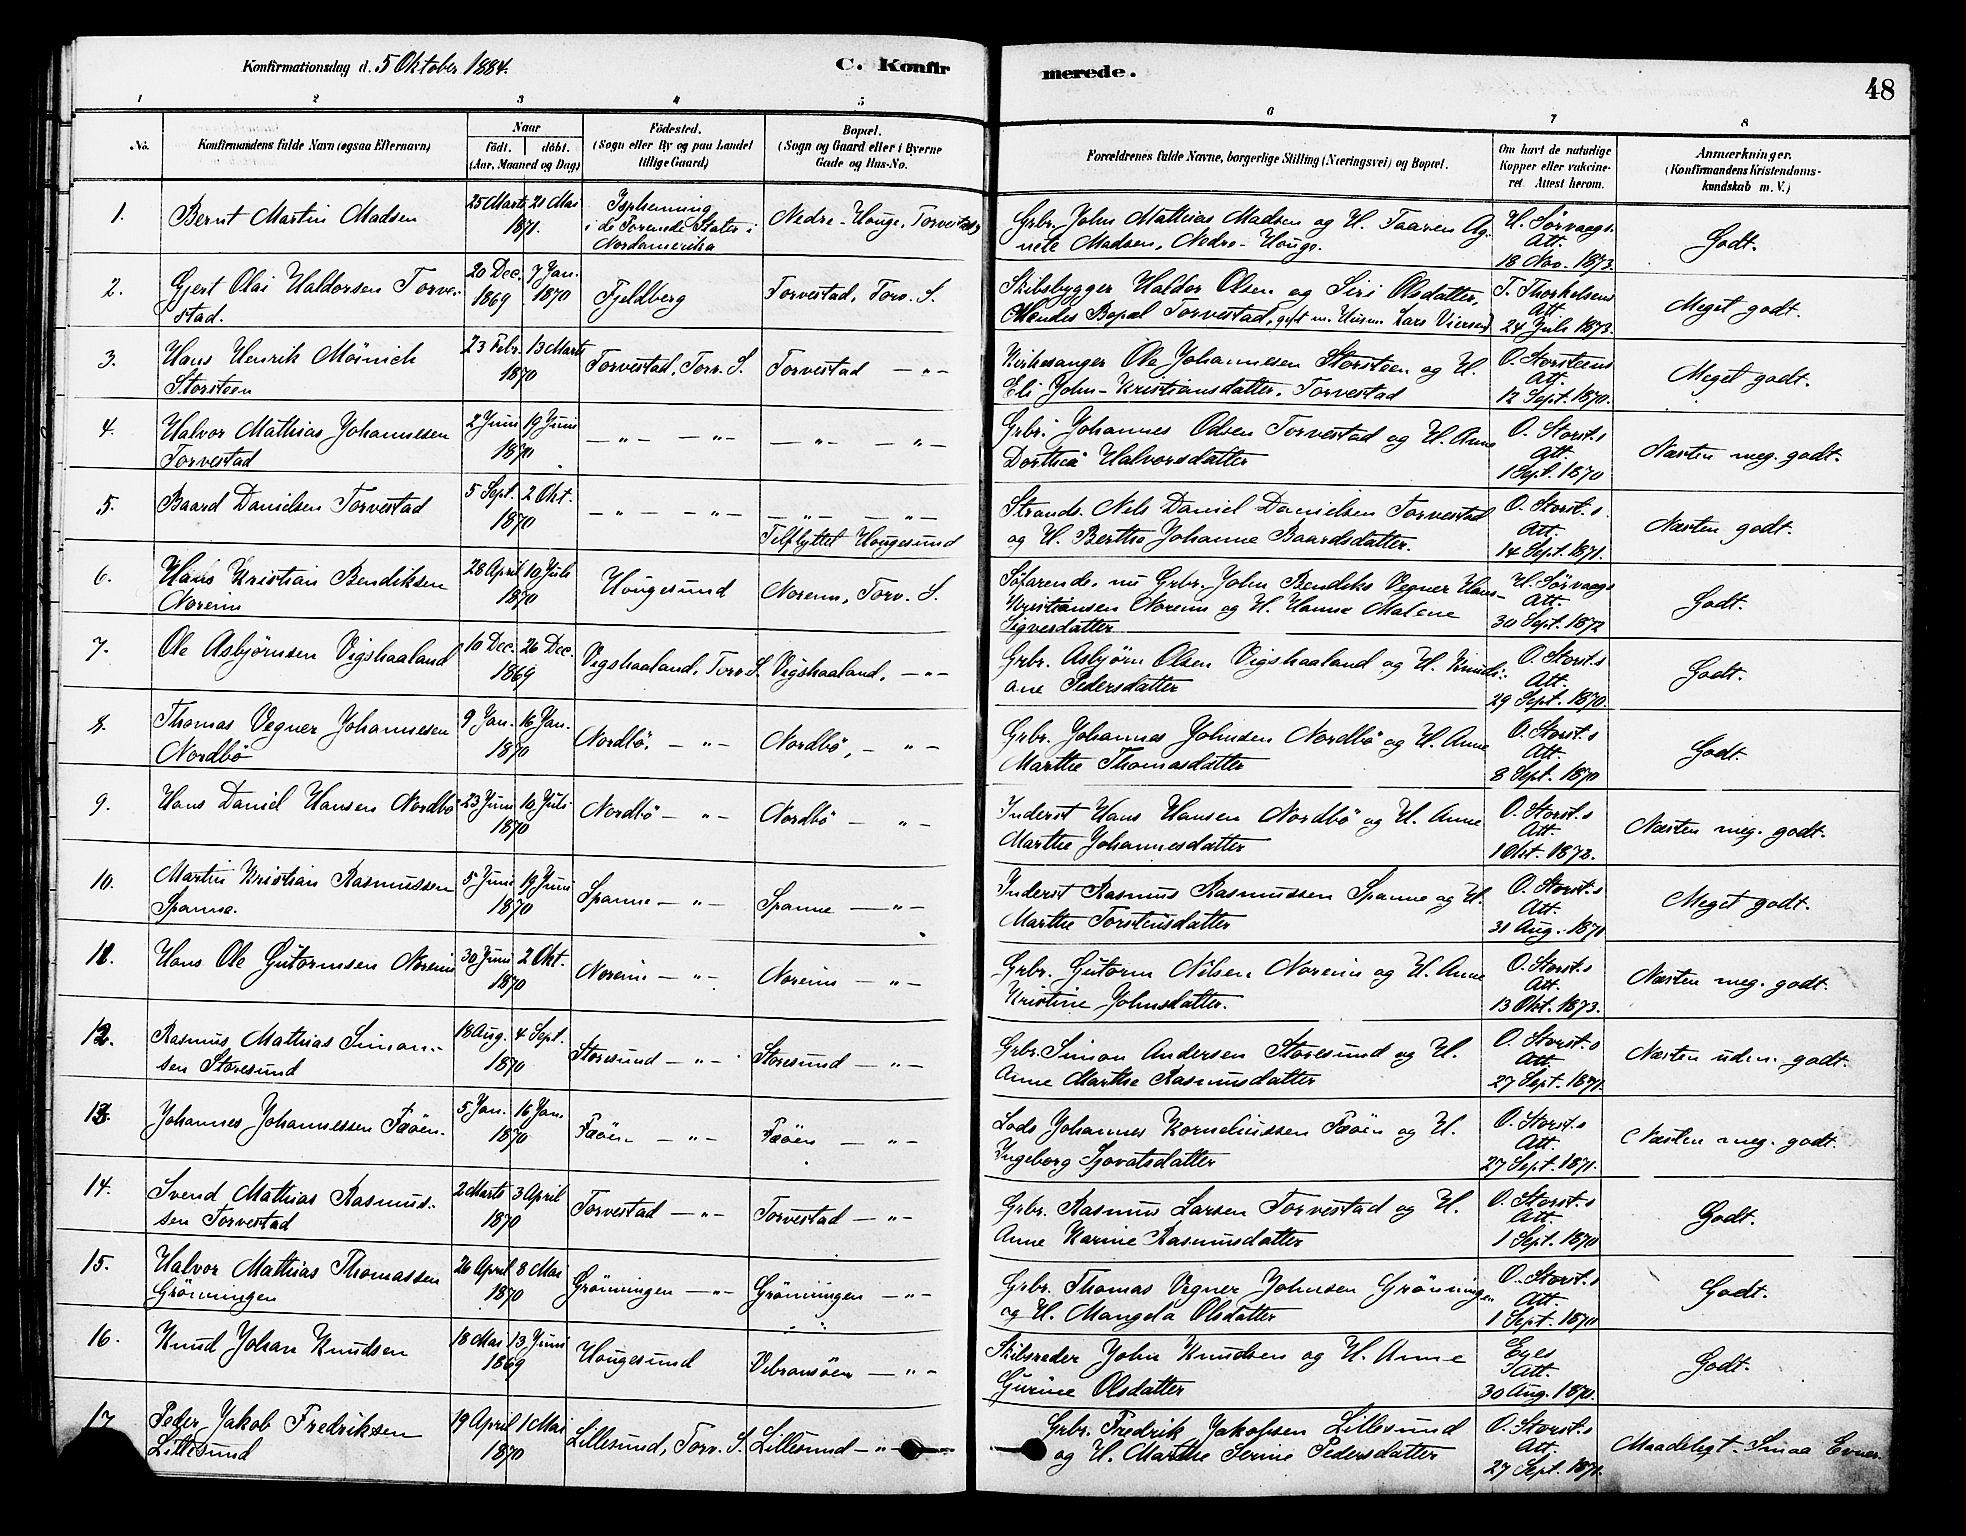 Konfirmationsdag d. 5 Oktober 1884.
C. Konfirmerede.
48
1 2 3 4 5 6 7 8
No.
Konfirmandens fulde Navn (ogsaa Efternavn)
Naar
födt. döbt.
(Aar, Maaned og Dag)
Födested.
(Sogn eller By og paa Landet
tillige Gaard)
Bopæl.
(Sogn og Gaard eller i Byerne
Gade og Hus-No.
Forældrenes fulde Navne, borgerlige Stilling (Næringsvei) og Bopæl.
Om havt de naturlige
Kopper eller vakcine-
ret. Attest herom.
Anmærkninger.
(Konfirmandens Kristendoms-
kundskab m. V.)
1. Bernt Martin Madsen
25 Marts 21 Mai
1871.
i de Forenede Stater i
Nordamerika
Nedre-Houge, Torvestad
Grbr. John Mathias Madsen og H. Taaren Ag-
nete Madsen, Nedre-Houge.
H. Sørvaags
Att.
18 Nov. 1873.
Godt.
2. Gjert Olai Haldorsen Torve-
stad.
20 Dec. 7 Jan.
1869 1870
Fjeldberg
Torvestad, Torv. S.
Skibsbygger Haldor Olsen og Siri Olsdatter,
Hendes Bopæl Torvestad, gift m. Husm. Lars Viersen
T. Thorkelsens
Att.
24 Juli 1873.
Meget godt.
3. Hans Henrik Möinich
Storsteen
23 Febr. 13 Marts
1870
Torvestad, Torv. S.
Torvestad — " —
Kirkesanger Ole Johannesen Storsteen og H.
Eli John-Kristiansdatter, Torvestad
O. Storsteens
Att.
12 Sept. 1870.
Meget godt.
4. Halvor Mathias Johannesen
Torvestad
2 Juni 19 Juni
1870
— " — — " —
— " — — " —
Grbr. Johannes Olsen Torvestad og H. Anne
Dorthea Halvorsdatter
O. Storst.s
Att.
1 Sept. 1870
Næsten meg. godt.
5. Baard Danielsen Torvestad
5 Sept. 2 Okt.
1870
— " — — " —
— " — — " —
Tilflyttet Hougesund
Strands. Nils Daniel Danielsen Torvestad
og H. Berthe Johanne Baardsdatter.
O. Storst.s
Att.
14 Sept. 1871.
Næsten godt.
6. Hans Kristian Bendiksen
Noreim
28 April 10 Juli
1870
Hougesund
Noreim, Torv. S.
Søfarende, nu Grbr. John Bendiks Vegner Hans-
Kristiansen Noreim og H. Hanne Malene
Sigvesdatter
H. Sørvaags
Att.
30 Sept. 1872
Godt.
7. Ole Asbjørnsen Vigshaaland
10 Dec. 26 Dec.
1869
Vigshaaland, Torv. S.
Vigshaaland, — " —
Grbr. Asbjørn Olsen Vigshaaland og H. Knudi-
ane Pedersdatter
O. Storst.s
Att.
29 Sept. 1870.
Godt.
8. Thomas Vegner Johannesen
Nordbö
9 Jan. 16 Jan.
1870
Nordbö, — " —
Nordbö, — " —
Grbr. Johannes Johnsen Nordbö og H. Anne
Marthe Thomasdatter
O. Storst.s
Att.
8 Sept. 1870
Godt.
9. Hans Daniel Hansen Nordbö
23 Juni 10 Juli
1870
Nordbö — " —
Nordbö — " —
Inderst Hans Hansen Nordbö og H. Anne
Marthe Johannesdatter
O. Storst.s
Att.
1 Okt. 1872.
Næsten meg. godt.
10. Martin Kristian Rasmussen
Spanne.
5 Juni 19 Juni
1870
Spanne — " —
Spanne — " —
Inderst Rasmus Rasmussen Spanne og H.
Marthe Torstensdatter
O. Storst.s
Att.
31 Aug. 1871
Meget godt.
11. Hans Ole Gutormsen Noreim
30 Juni 2 Okt.
1870
Noreim — " —
Noreim — " —
Grbr. Gutorm Nilsen Noreim og H. Anne
Kristine Johnsdatter.
O. Storst.s
Att.
13 Okt. 1873.
Næsten meg. godt.
12. Rasmus Mathias Simon-
sen Storesund
18 Aug. 4 Sept.
1870
Storesund — " —
Storesund — " —
Grbr. Simon Andersen Storesund og H.
Anne Marthe Rasmusdatter
O. Storst.s
Att.
27 Sept. 1871.
Næsten udm. godt.
13. Johannes Johannessen Fæöen.
5 Jan. 16 Jan.
1870
Fæöen — " —
Fæöen — " —
Lods Johannes Korneliussen Fæöen og H.
Ingeborg Sjovatsdatter
O. Storst.s
Att.
27 Sept. 1871.
Næsten meg. godt.
14. Svend Mathias Rasmus-
sen Torvestad
2 Marts 3 April
1870
Torvestad — " —
Torvestad — " —
Grbr. Rasmus Larsen Torvestad og H.
Anne Karine Rasmusdatter
O. Storst.s
Att.
1 Sept. 1870
Godt.
15. Halvor Mathias Thomassen
Grönningen
26 April 8 Mai
1870
Grönningen — " —
Grönningen — " —
Grbr. Thomas Vegner Johnsen Grönningen
og H. Mangela Olsdatter
O. Storst.s
Att.
1 Sept. 1870
Godt.
16. Knud Johan Knudsen
18 Mai 13 Juni
1869
Hougesund
Vibransöen — " —
Skibsreder John Knudsen og H. Anne
Gurine Olsdatter
Eyes
Att.
30 Aug. 1870.
Godt.
17. Peder Jakob Fredriksen
Lillesund
19 April 1 Mai
1870
Lillesund, Torv. S.
Lillesund — " —
Grbr. Fredrik Jakobsen Lillesund
og H. Marthe Serine Pedersdatter
O. Storst.s
Att.
27 Sept. 1871.
Maadeligt. Smaa Evner.